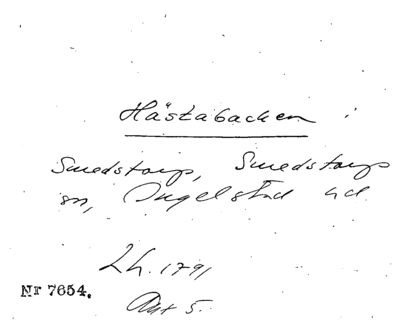 Hästabacken
Smedstorp, Smedstorps
sn, Ingelstad hd
Lh. 1791
Akt 5.
Nr 7654.